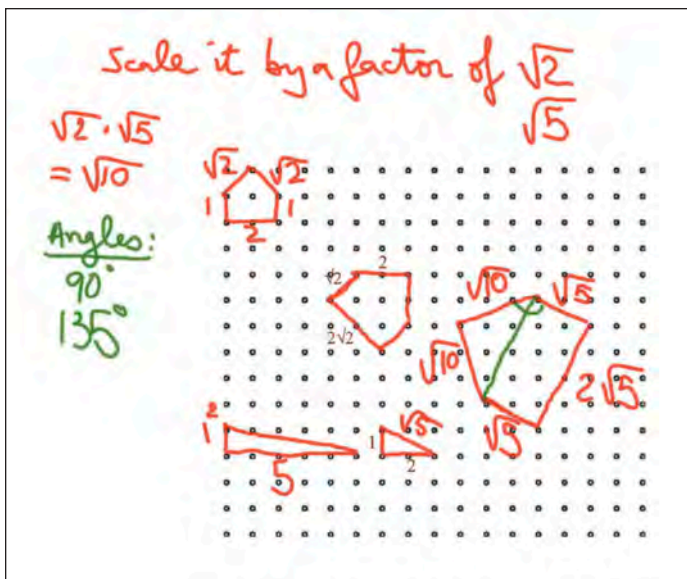 scale it by a factor of √2
√5
√2 · √5
= √10
Angles:
90°
135°
√2 √2
1 1
2
√2 2
2√2
√10 √5
√10 2√5
√5
2
1
5
1 √5
2